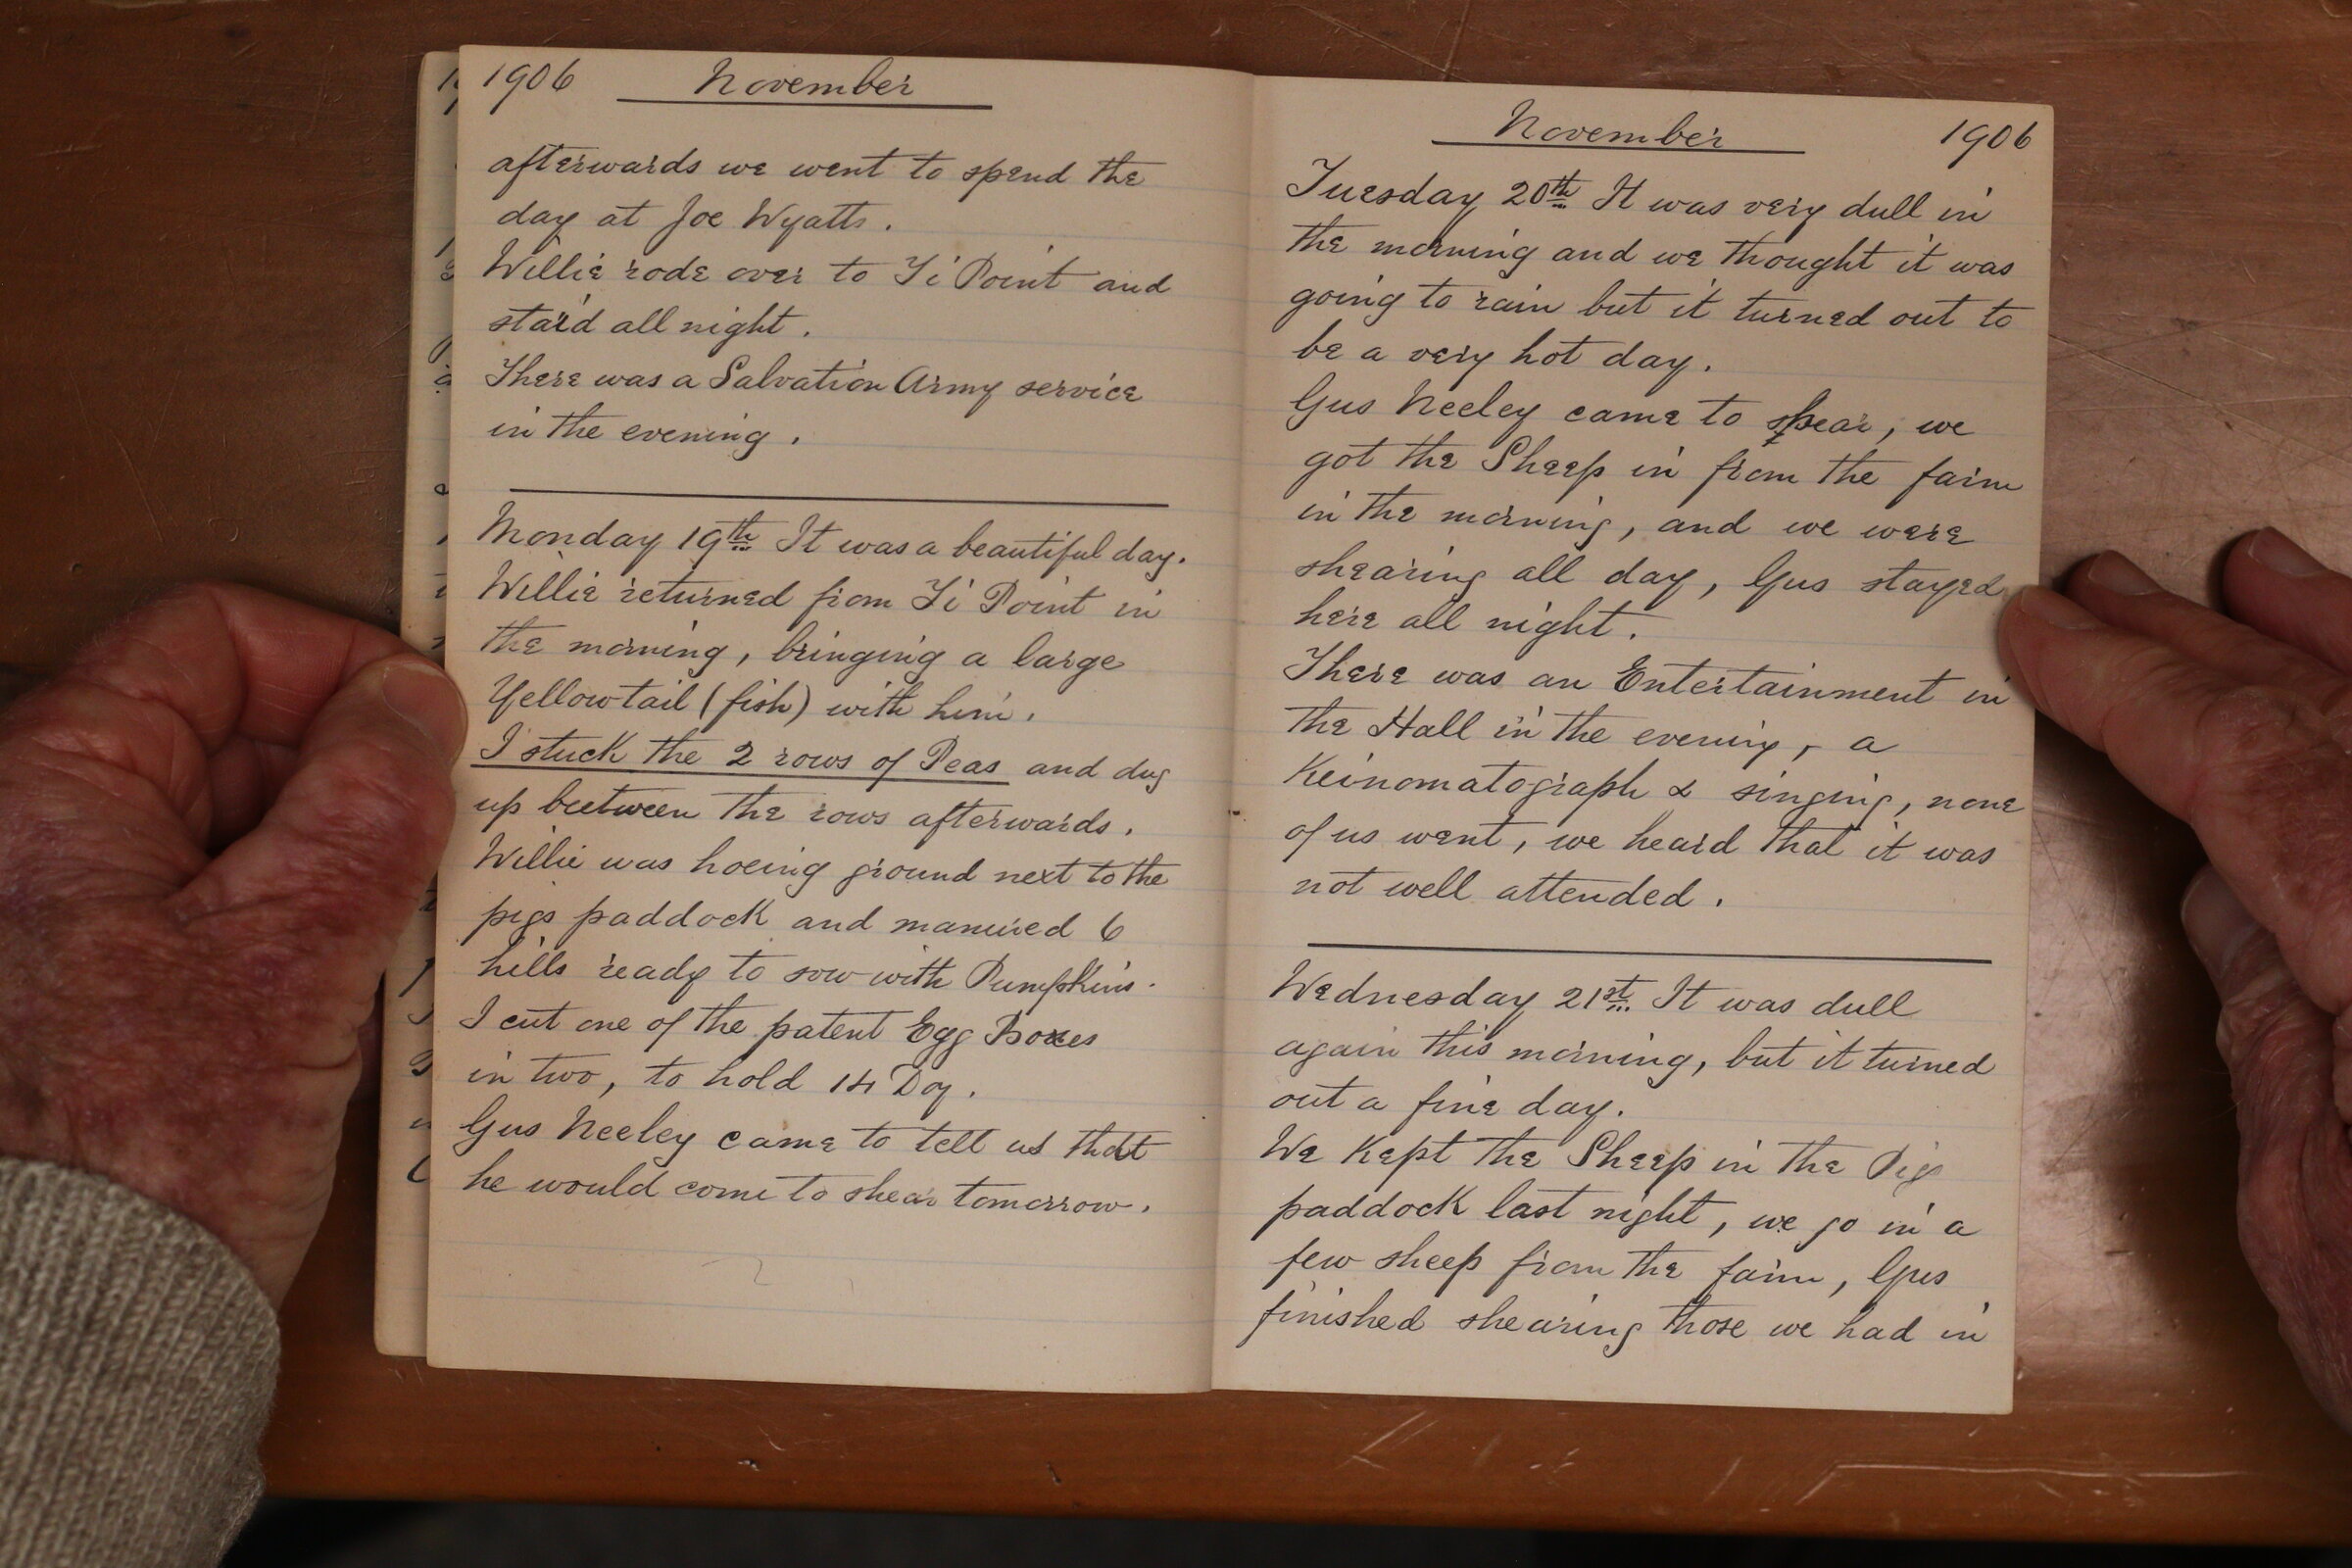 1906 November
afterwards we went to spend the
day at Joe Wyatts.
Willie rode over to Ti Point and
staid all night.
There was a Salvation Army service
in the evening.
Monday 19th It was a beautiful day.
Willie returned from Ti Point in
the morning, bringing a large
Yellowtail (fish) with him.
I stuck the 2 rows of Peas and dug
up beetween the rows afterwards.
Willie was hoeing ground next to the
pigs paddock and manured 6
hills ready to sow with Pumpkins.
I cut one of the patent Egg Boxes
in two, to hold 14 Doz.
Gus Neeley came to tell us that
he would come to shear tomorrow.
November 1906
Tuesday 20th It was very dull in
the morning and we thought it was
going to rain but it turned out to
be a very hot day.
Gus Neeley came to shear, we
got the Sheep in from the farm
in the morning, and we were
shearing all day, Gus stayed
here all night.
There was an Entertainment in
the Hall in the evening, a
Keinomatograph & singing, none
of us went, we heard that it was
not well attended.
Wednesday 21st It was dull
again this morning, but it turned
out a fine day.
We Kept the Sheep in the Pigs
paddock last night, we go in a
few sheep from the farm, Gus
finished shearing those we had in